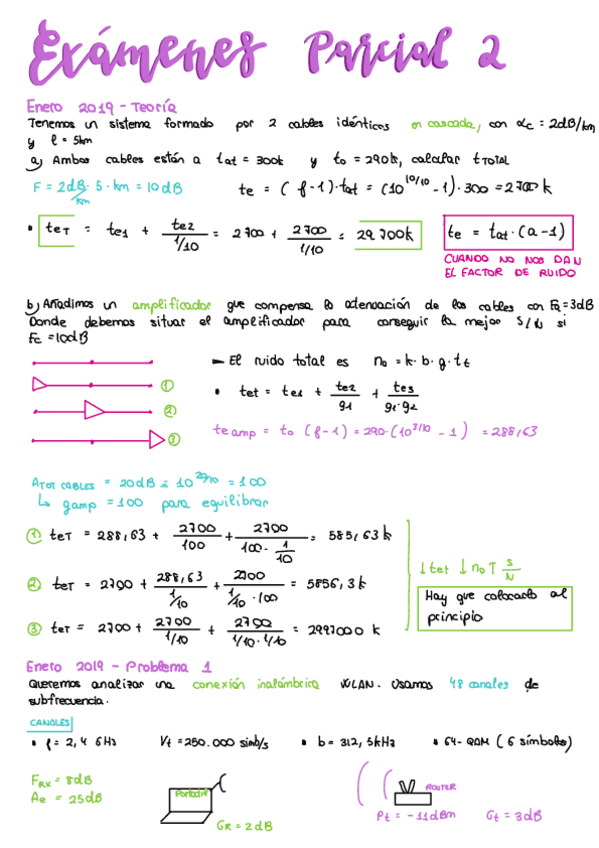 Exámenes Parcial 2
Enero 2019 - Teoría
Tenemos un sistema formado por 2 cables idénticos en cascada, con αc = 2dB/km
y l = 5km
a) Ambos cables están a tat = 300k y to = 290k, calcular tTOTAL
F = 2dB/km · 5 · km = 10dB
te = (f-1)·tat = (10^10/10 - 1)·300 = 2700 k
• teT = te1 + te2/(1/10) = 2700 + 2700/(1/10) = 29.700k
te = tat·(a-1)
CUANDO NO NOS DAN
EL FACTOR DE RUIDO
b) Añadimos un amplificador que compensa la atenuación de los cables con Fa = 3dB
Donde debemos situar el amplificador para conseguir la mejor S/N si
Fc = 10dB
- El ruido total es no = k·b·g·tt
①
②
③
• tet = te1 + te2/g1 + te3/(g1·g2)
te amp = to (f-1) = 290·(10^3/10 - 1) = 288,63
ATOT CABLES = 20dB = 10^20/10 = 100
↳ gamp = 100 para equilibrar
① teT = 288,63 + 2700/100 + 2700/(100·1/10) = 585,63k
② teT = 2700 + 288,63/(1/10) + 2700/(1/10·100) = 5856,3k
③ teT = 2700 + 2700/(1/10) + 2700/(1/10·1/10) = 2997000 k
↓tet ↓no ↑ S/N
Hay que colocarlo al
principio
Enero 2019 - Problema 1
Queremos analizar una conexión inalámbrica WLAN. Usamos 48 canales de
subfrecuencia.
CANALES
• f = 2,4 GHz Vt = 250.000 simb/s • b = 312,5kHz • 64-QAM (6 símbolos)
FRX = 8dB
Ae = 25dB
Portátil
GR = 2dB
ROUTER
Pt = -11dBm Gt = 3dB